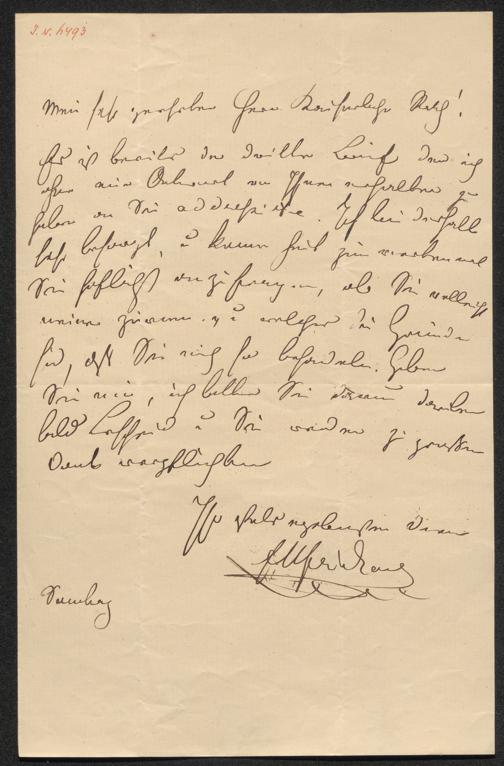 J. N. 6493
Mein sehr geehrter Herr Kaiserlicher Rath!
Es ist bereits der dritte Brief den ich
ohne eine Antwort von Ihnen erhalten zu
haben an Sie addressire. Ich bin deshalb
sehr besorgt, u komme heut zum
Sie höflichst anzufragen, ob Sie vielleicht
meiner zürnen u welches die Gründe
sind, daß Sie mich so behandeln. Geben
Sie mir, ich bitte Sie darum
bald Bescheid u Sie werden zu großem
Dank verpflichten
Ihr ergebensten Diener
Samstag